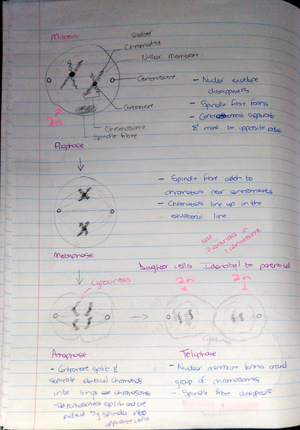 Mitosis
Sister
Chromatid
Nuclear Membrane
Centrosome
Centromere
Chromosome
Spindle fibre
2n
Prophase
- Nuclear envelope
disappears
- Spindle fibre forms
- Centrosomes separate
& move to opposite poles
- Spindle fibre attach to
chromatids near centromeres
- Chromatids line up in the
equatorial line
Metaphase
Cytokinesis
Daughter cells identical to parent cell
2n
2n
Anaphase
- Centromere split &
separate
into
chromosomes
pulled by spindle
Telophase
- Nuclear membrane forms around
group of chromosomes
- Spindle fibre disappears